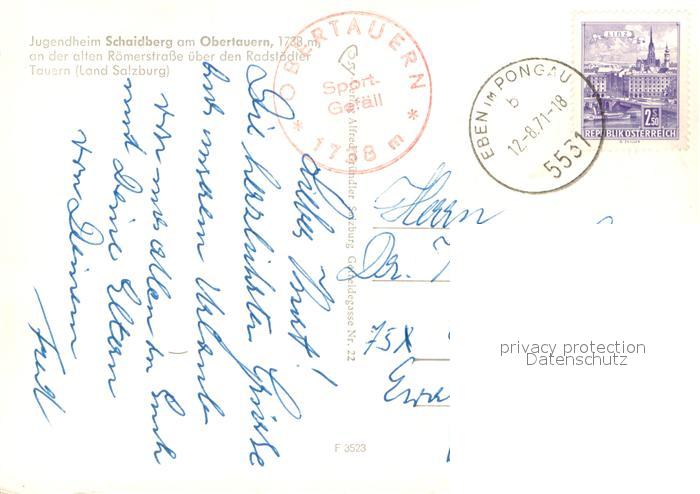 Jugendheim Schaidberg am Obertauern, 1738 m,
an der alten Römerstraße über den Radstädter
Tauern (Land Salzburg)
OBERTAUERN
Sport-
Gefäll
* 1738 m *
EBEN IM PONGAU
b
12-8.71-18
5531
LINZ
2.50
REPUBLIK ÖSTERREICH
Alfred Gründler, Salzburg, Getreidegasse Nr. 22
Lieber
Die herzlichsten Grüße
aus unserem Urlaub
von uns allen an Euch
und Deine Eltern
von Deinem
Herrn
Dr.
75X
F 3523
privacy protection
Datenschutz